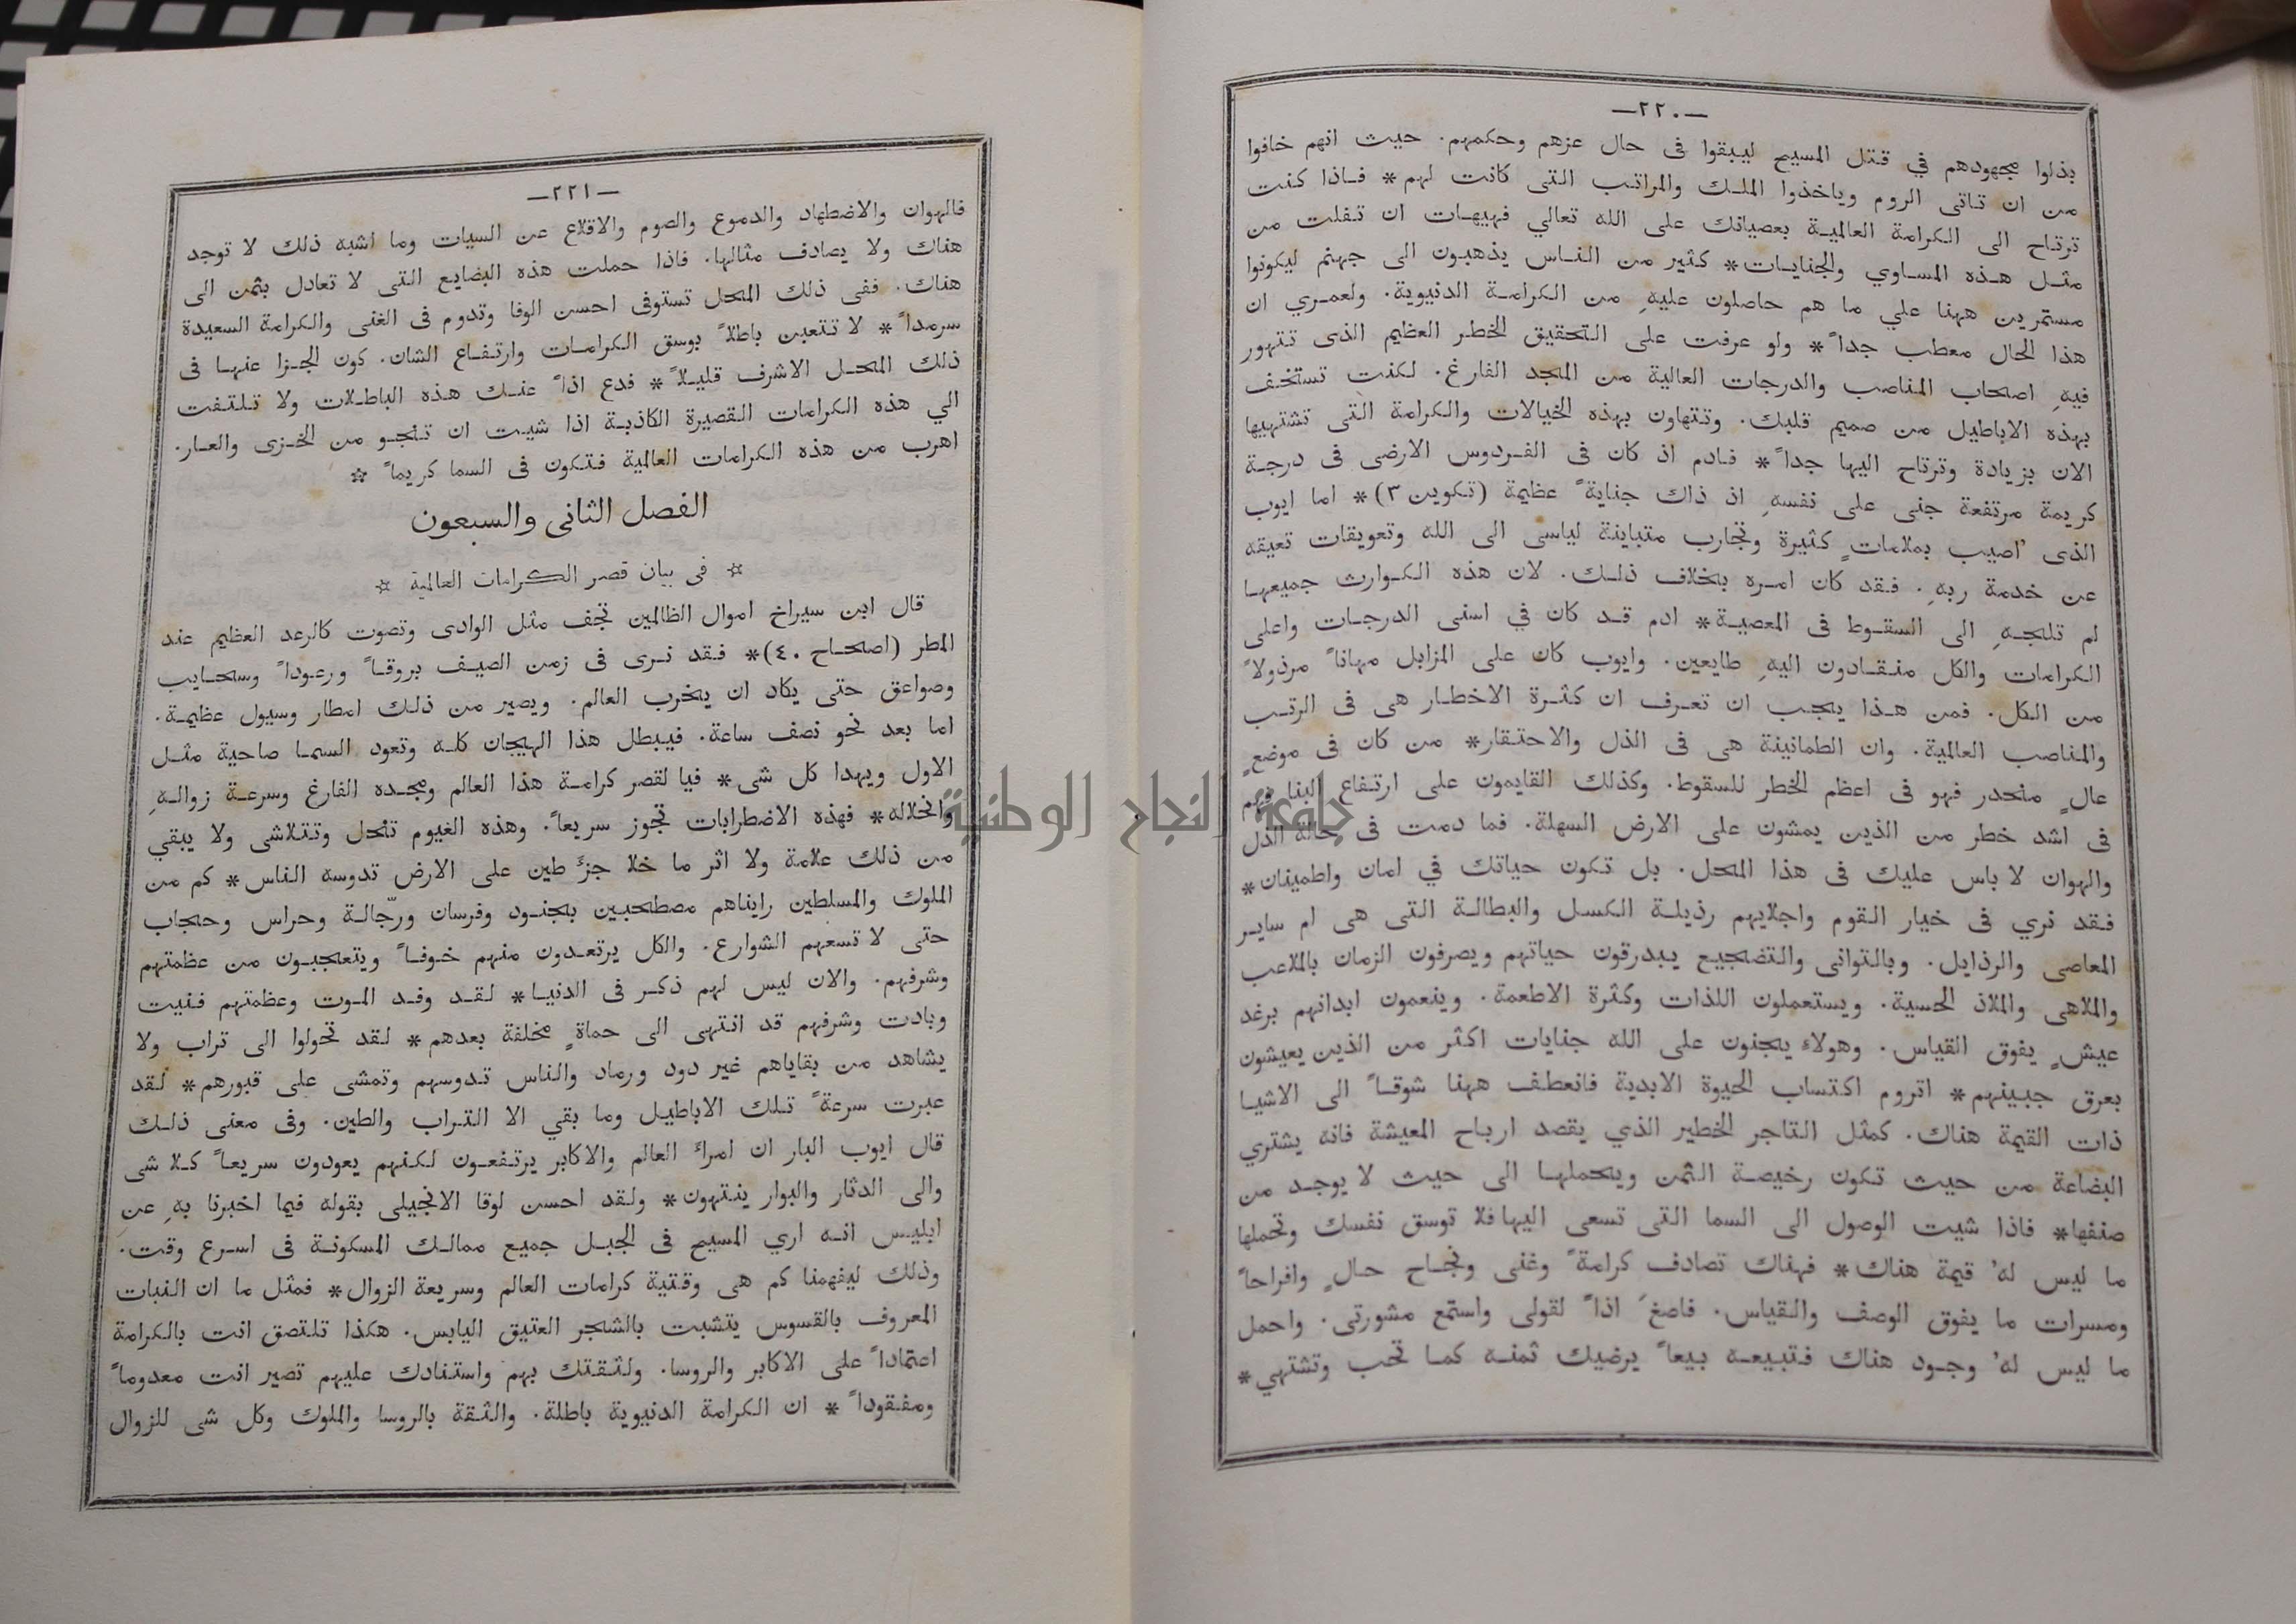 —٢٢٠—
بذلوا مجهودهم في قتل المسيح ليبقوا فى حال عزهم وحكمهم. حيث انهم خافوا
من ان تاتى الروم وياخذوا الملك والمراتب التى كانت لهم* فاذا كنت
ترتاح الى الكرامة العالمية بعصيانك على الله تعالي فهيهات ان تفلت من
مثل هذه المساوي والجنايات* كثير من الناس يذهبون الى جهنم ليكونوا
مستمرين ههنا علي ما هم حاصلون عليهِ من الكرامة الدنيوية. ولعمري ان
هذا الحال معطب جداً* ولو عرفت على التحقيق الخطر العظيم الذى تتهور
فيهِ اصحاب المناصب والدرجات العالية من المجد الفارغ. لكنت تستخف
بهذه الاباطيل من صميم قلبك. وتتهاون بهذه الخيالات والكرامة التى تشتهيها
الان بزيادة وترتاح اليها جداً* فادم اذ كان فى الفردوس الارضى فى درجة
كريمة مرتفعة جنى على نفسهِ اذ ذاك جنايةً عظيمة (تكوين ٣)* اما ايوب
الذى اُصيب بملاماتٍ كثيرة وتجارب متباينة لياسى الى الله وتعويقات تعيقه
عن خدمة ربهِ. فقد كان امره بخلاف ذلك. لان هذه الكوارث جميعها
لم تلجهِ الى السقوط فى المعصية* ادم قد كان في اسنى الدرجات واعلى
الكرامات والكل منقادون اليهِ طايعين. وايوب كان على المزابل مهاناً مرذولاً
من الكل. فمن هذا يجب ان تعرف ان كثرة الاخطار هى فى الرتب
والمناصب العالمية. وان الطمانينة هى فى الذل والاحتقار* من كان فى موضعٍ
عالٍ منحدر فهو فى اعظم الخطر للسقوط. وكذلك القايمون على ارتفاع البنا فهم
فى اشد خطر من الذين يمشون على الارض السهلة. فما دمت فى حالة الذل
والهوان لا باس عليك فى هذا المحل. بل تكون حياتك في امان واطمينان*
فقد نري فى خيار القوم واجلايهم رذيلة الكسل والبطالة التى هى ام ساير
المعاصى والرذايل. وبالتوانى والتضجيع يبدرقون حياتهم ويصرفون الزمان بالملاعب
والملاهى والملاذ الحسية. ويستعملون اللذات وكثرة الاطعمة. وينعمون ابدانهم برغد
عيشٍ يفوق القياس. وهولاء يجنون على الله جنايات اكثر من الذين يعيشون
بعرق جبينهم* اتروم اكتساب الحيوة الابدية فانعطف ههنا شوقاً الى الاشيا
ذات القيمة هناك. كمثل التاجر الخطير الذي يقصد ارباح المعيشة فانه يشتري
البضاعة من حيث تكون رخيصة الثمن ويحملها الى حيث لا يوجد من
صنفها* فاذا شيت الوصول الى السما التى تسعى اليها فلا توسق نفسك وتحملها
ما ليس لهُ قيمة هناك* فهناك تصادف كرامةً وغنى ونجاح حالٍ وافراحاً
ومسرات ما يفوق الوصف والقياس. فاصغَ اذاً لقولى واستمع مشورتى. واحمل
ما ليس لهُ وجود هناك فتبيعه بيعاً يرضيك ثمنه كما تحب وتشتهي*
—٢٢١—
فالهوان والاضطهاد والدموع والصوم والاقلاع عن السيات وما اشبه ذلك لا توجد
هناك ولا يصادف مثالها. فاذا حملت هذه البضايع التى لا تعادل بثمن الى
هناك. ففى ذلك المحل تستوفى احسن الوفا وتدوم فى الغنى والكرامة السعيدة
سرمداً* لا تتعبن باطلاً بوسق الكرامات وارتفاع الشان. كون الجزا عنها فى
ذلك المحل الاشرف قليلاً* فدع اذاً عنك هذه الباطلات ولا تلتفت
الي هذه الكرامات القصيرة الكاذبة اذا شيت ان تنجو من الخزى والعار.
اهرب من هذه الكرامات العالمية فتكون فى السما كريماً *
الفصل الثانى والسبعون
* فى بيان قصر الكرامات العالمية *
قال ابن سيراخ اموال الظالمين تجف مثل الوادى وتصوت كالرعد العظيم عند
المطر (اصحاح ٤٠)* فقد نرى فى زمن الصيف بروقاً ورعوداً وسحايب
وصواعق حتى يكاد ان يخرب العالم. ويصير من ذلك امطار وسيول عظيمة.
اما بعد نحو نصف ساعة. فيبطل هذا الهيجان كله وتعود السما صاحية مثل
الاول ويهدا كل شى* فيا لقصر كرامة هذا العالم ومجده الفارغ وسرعة زوالهِ
وانحلاله* فهذه الاضطرابات تجوز سريعاً. وهذه الغيوم تنحل وتتلاشى ولا يبقي
من ذلك علامة ولا اثر ما خلا جزَ طين على الارض تدوسه الناس* كم من
الملوك والمسلطين رايناهم مصطحبين بجنود وفرسان ورجّالة وحراس وحجاب
حتى لا تسعهم الشوارع. والكل يرتعدون منهم خوفاً ويتعجبون من عظمتهم
وشرفهم. والان ليس لهم ذكر فى الدنيا* لقد وفد الموت وعظمتهم فنيت
وبادت وشرفهم قد انتهى الى حماةٍ مخلفة بعدهم* لقد تحولوا الى تراب ولا
يشاهد من بقاياهم غير دود ورماد والناس تدوسهم وتمشى على قبورهم* لقد
عبرت سرعةً تلك الاباطيل وما بقي الا التراب والطين. وفى معنى ذلك
قال ايوب البار ان امراء العالم والاكابر يرتفعون لكنهم يعودون سريعاً كلا شى
والى الدثار والبوار ينتهون* ولقد احسن لوقا الانجيلى بقوله فيما اخبرنا بهِ عن
ابليس انه اري المسيح فى الجبل جميع ممالك المسكونة فى اسرع وقت.
وذلك ليفهمنا كم هى وقتية كرامات العالم وسريعة الزوال* فمثل ما ان النبات
المعروف بالقسوس يتشبت بالشجر العتيق اليابس. هكذا تلتصق انت بالكرامة
اعتماداً على الاكابر والروسا. ولثقتك بهم واستنادك عليهم تصير انت معدوماً
ومفقوداً* ان الكرامة الدنيوية باطلة. والثقة بالروسا والملوك وكل شى للزوال
جامعة النجاح الوطنية